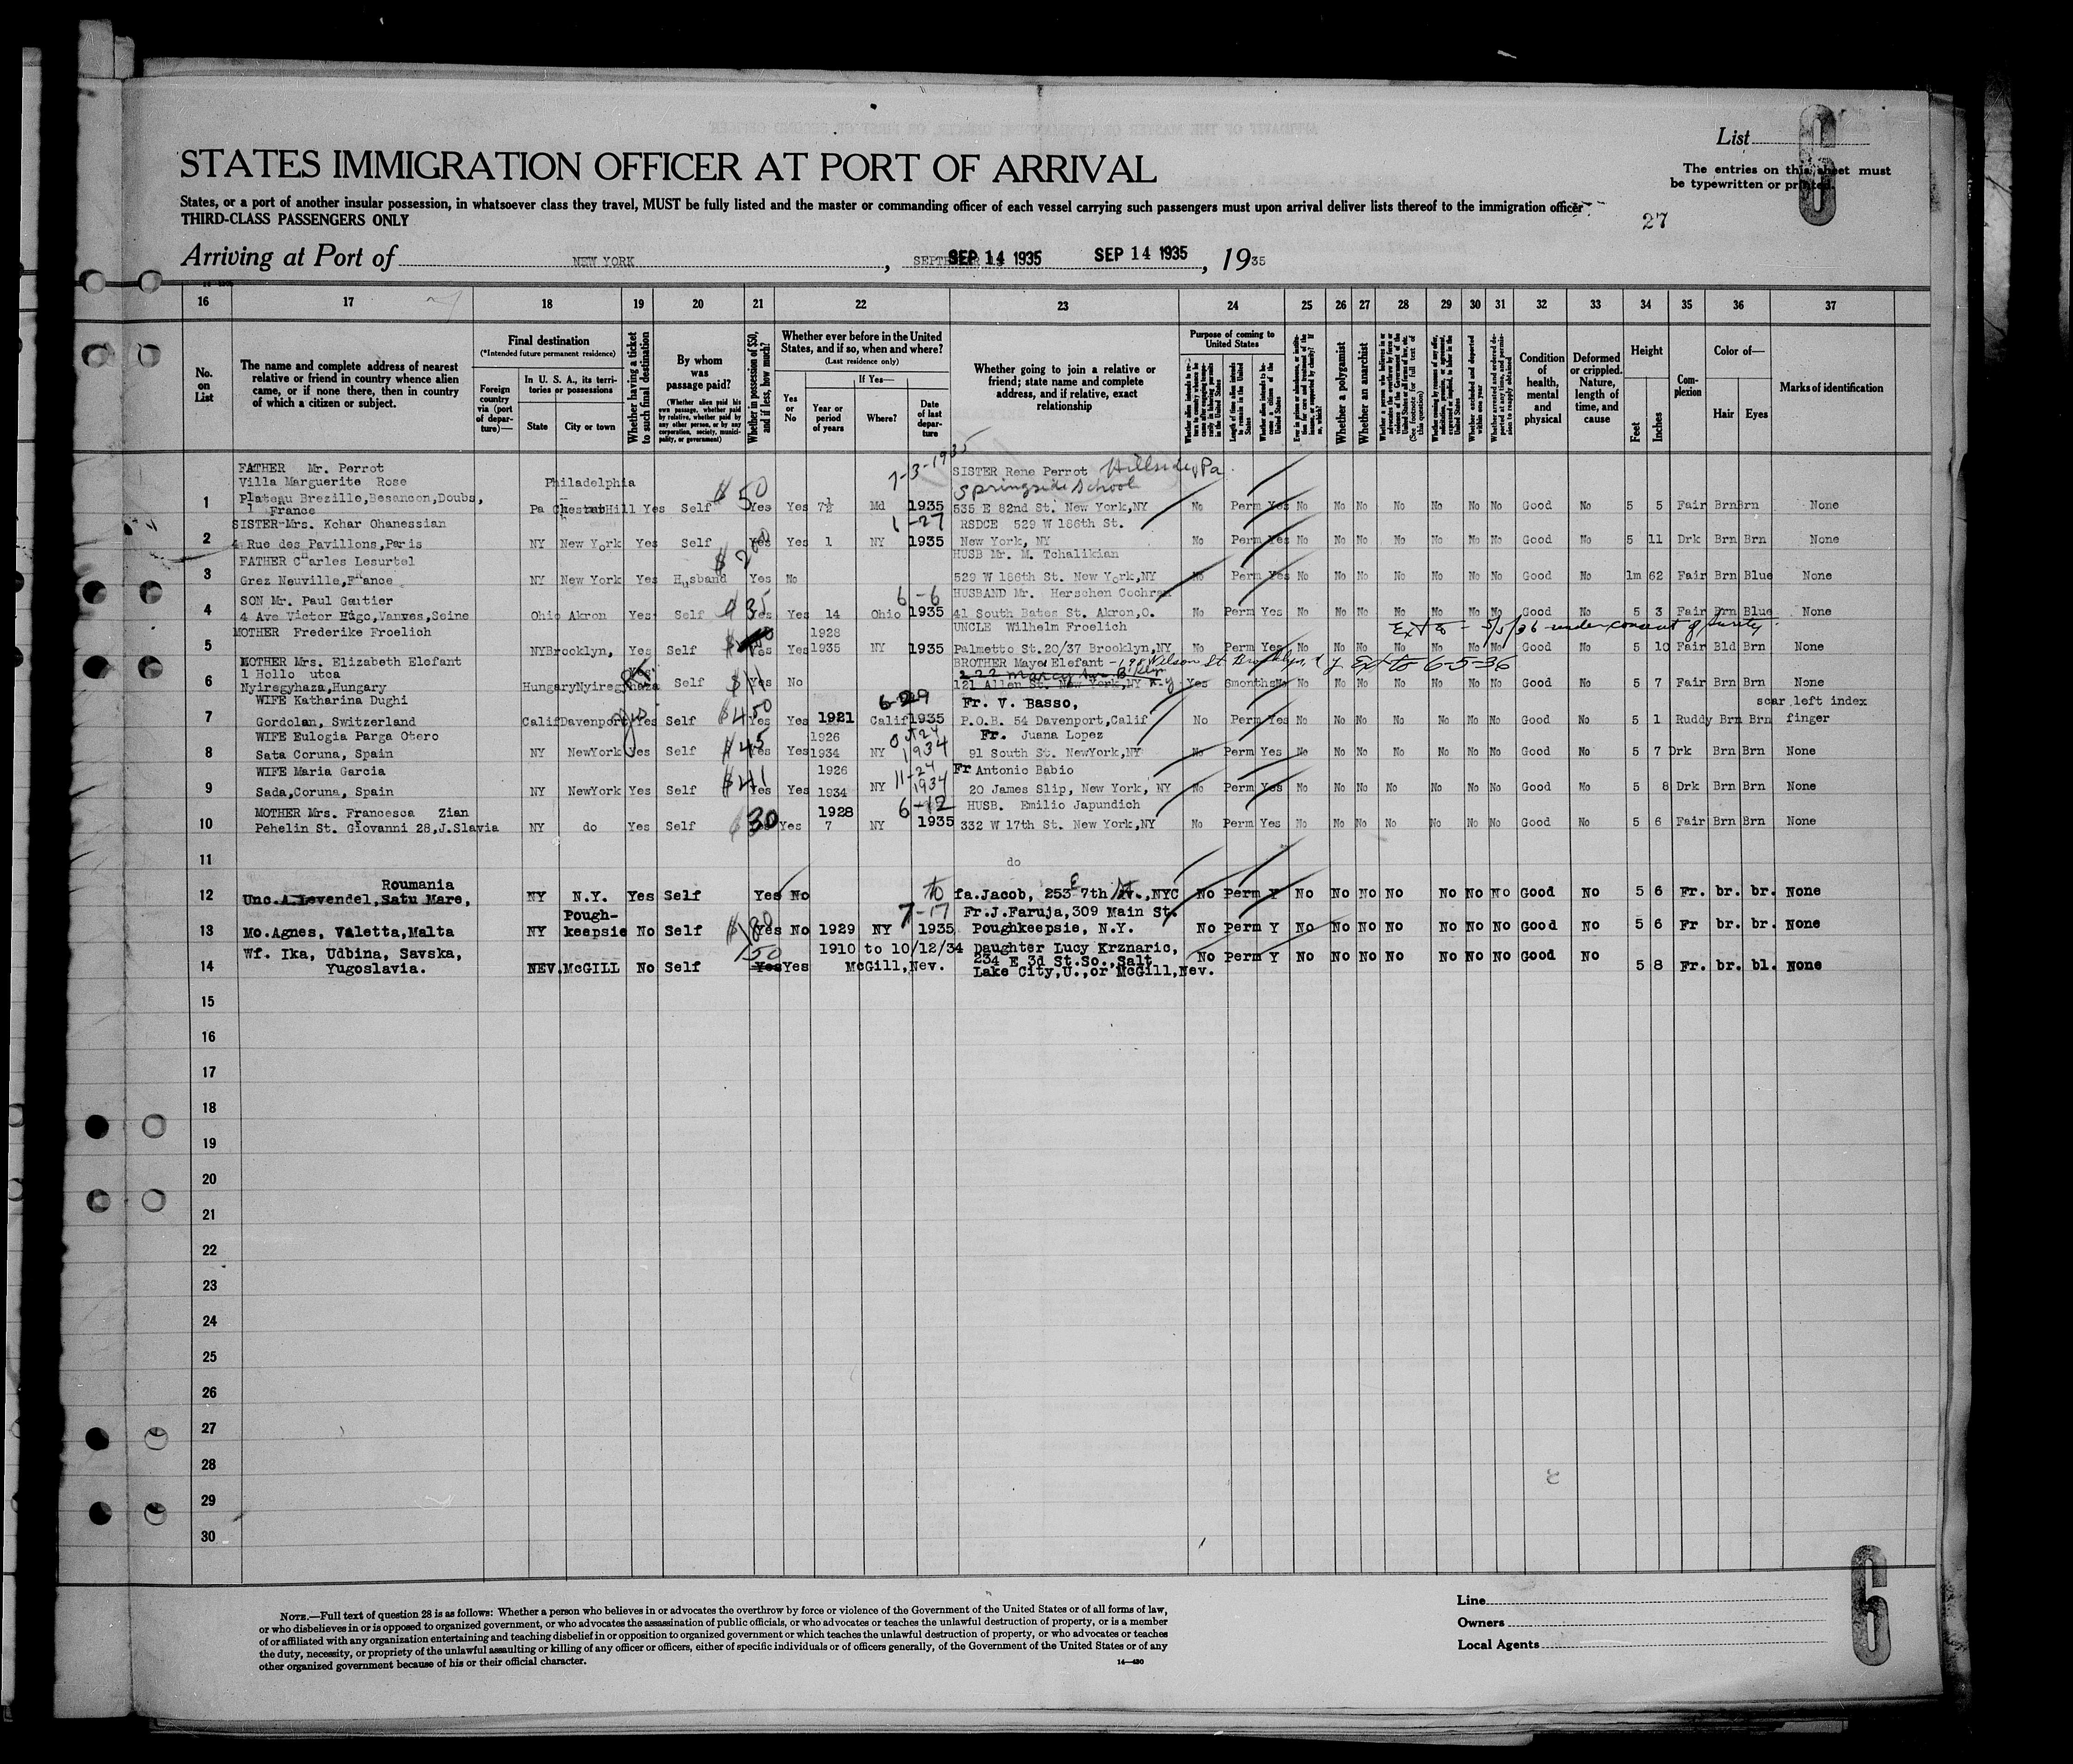 List
6
The entries on this sheet must
be typewritten or printed.
STATES IMMIGRATION OFFICER AT PORT OF ARRIVAL
States, or a port of another insular possession, in whatsoever class they travel, MUST be fully listed and the master or commanding officer of each vessel carrying such passengers must upon arrival deliver lists thereof to the immigration officer
THIRD-CLASS PASSENGERS ONLY
27
Arriving at Port of NEW YORK, SEP 14 1935 SEP 14 1935, 1935
16 17 18 19 20 21 22 23 24 25 26 27 28 29 30 31 32 33 34 35 36 37
No. on List
The name and complete address of nearest relative or friend in country whence alien came, or if none there, then in country of which a citizen or subject.
Final destination
(*Intended future permanent residence)
Foreign country via (port of departure)—
In U. S. A., its territories or possessions
State
City or town
Whether having a ticket to such final destination
By whom was passage paid?
(Whether alien paid his own passage, whether paid by relative, whether paid by any other person, or by any corporation, society, municipality, or government)
Whether in possession of $50, and if less, how much?
Whether ever before in the United States, and if so, when and where?
(Last residence only)
Yes or No
If Yes—
Year or period of years
Where?
Date of last departure
Whether going to join a relative or friend; state name and complete address, and if relative, exact relationship
Purpose of coming to United States
Length of time alien intends to remain in the United States
Whether alien intends to become a citizen of the United States
Whether a polygamist
Whether an anarchist
Condition of health, mental and physical
Deformed or crippled. Nature, length of time, and cause
Height
Feet
Inches
Complexion
Color of—
Hair
Eyes
Marks of identification
7-3-1935
FATHER Mr. Perrot SISTER Rene Perrot Hillside, Pa.
Villa Marguerite Rose Philadelphia Springside School
1 Plateau Brezille, Besancon, Doubs, Pa Chestnut Hill Yes Self $50 Yes Yes 7½ Md 1935 535 E 82nd St. New York, NY No Perm Yes No No No No No No No Good No 5 5 Fair Brn Brn None
France
SISTER-Mrs. Kohar Ohanessian 1-27 RSDCE 529 W 186th St.
2 4 Rue des Pavillons, Paris NY New York Yes Self Yes Yes 1 NY 1935 New York, NY No Perm Yes No No No No No No No Good No 5 11 Drk Brn Brn None
FATHER Charles Lesurtel $200 HUSB Mr. M. Tchalikian
3 Grez Neuville, France NY New York Yes Husband Yes No 529 W 186th St. New York, NY No Perm Yes No No No No No No No Good No 1m 62 Fair Brn Blue None
SON Mr. Paul Gautier 6-6 HUSBAND Mr. Herschen Cochran
4 4 Ave Victor Hugo, Vanves, Seine Ohio Akron Yes Self $35 Yes Yes 14 Ohio 1935 41 South Bates St. Akron, O. No Perm Yes No No No No No No No Good No 5 3 Fair Brn Blue None
MOTHER Frederike Froelich 1928 UNCLE Wilhelm Froelich Ext to 5/5/36 under consent of Surety.
5 NY Brooklyn, Yes Self Yes Yes 1935 NY 1935 Palmetto St. 20/37 Brooklyn, NY No Perm Yes No No No No No No No Good No 5 10 Fair Bld Brn None
MOTHER Mrs. Elizabeth Elefant BROTHER Mayer Elefant Wilson St Brooklyn, N Y Ext to 6-5-36
1 Hollo utca 222 Marcy Ave Bklyn N.Y.
6 Nyiregyhaza, Hungary Hungary Nyiregyhaza Self $11 Yes No 121 Allen St. New York, NY Yes 8months No No No No No No No No Good No 5 7 Fair Brn Brn None
WIFE Katharina Dughi 6-29 Fr. V. Basso, scar left index
7 Gordolan, Switzerland Calif Davenport Yes Self $450 Yes Yes 1921 Calif 1935 P.O.B. 54 Davenport, Calif No Perm Yes No No No No No No No Good No 5 1 Ruddy Brn Brn finger
WIFE Eulogia Parga Otero 1926 Oct 24 Fr. Juana Lopez
8 Sata Coruna, Spain NY NewYork Yes Self $45 Yes Yes 1934 NY 1934 91 South St. NewYork, NY No Perm Yes No No No No No No No Good No 5 7 Drk Brn Brn None
WIFE Maria Garcia 1926 11-24 Fr Antonio Babio
9 Sada, Coruna, Spain NY NewYork Yes Self $41 Yes Yes 1934 NY 1934 20 James Slip, New York, NY No Perm Yes No No No No No No No Good No 5 8 Drk Brn Brn None
MOTHER Mrs. Francesca Zian 1928 6-12 HUSB. Emilio Japundich
10 Pehelin St. Giovanni 28, J.Slavia NY do Yes Self $30 Yes 7 NY 1935 332 W 17th St. New York, NY No Perm Yes No No No No No No No Good No 5 6 Fair Brn Brn None
11 do
Roumania
12 Unc. A. Levendel, Satu Mare, NY N.Y. Yes Self Yes No fa. Jacob, 253 E 7th St., NYC No Perm Y No No No No No No No Good No 5 6 Fr. br. br. None
Pough- 7-17 Fr. J. Faruja, 309 Main St.
13 Mo. Agnes, Valetta, Malta NY keepsie No Self $180 Yes No 1929 NY 1935 Poughkeepsie, N.Y. No Perm Y No No No No No No No Good No 5 6 Fr br. br. None
Wf. Ika, Udbina, Savska, 150 1910 to 10/12/34 Daughter Lucy Krznaric,
234 E 3d St. So., Salt
14 Yugoslavia. NEV. McGILL No Self Yes Yes McGill, Nev. Lake City, U., or McGill, Nev. No Perm Y No No No No No No No Good No 5 8 Fr. br. bl. None
15
16
17
18
19
20
21
22
23
24
25
26
27
28
29
30
NOTE.—Full text of question 28 is as follows: Whether a person who believes in or advocates the overthrow by force or violence of the Government of the United States or of all forms of law,
or who disbelieves in or is opposed to organized government, or who advocates the assassination of public officials, or who advocates or teaches the unlawful destruction of property, or is a member
of or affiliated with any organization entertaining and teaching disbelief in or opposition to organized government or which teaches the unlawful destruction of property, or who advocates or teaches
the duty, necessity, or propriety of the unlawful assaulting or killing of any officer or officers, either of specific individuals or of officers generally, of the Government of the United States or of any
other organized government because of his or their official character.
14—430
Line
Owners
Local Agents
6